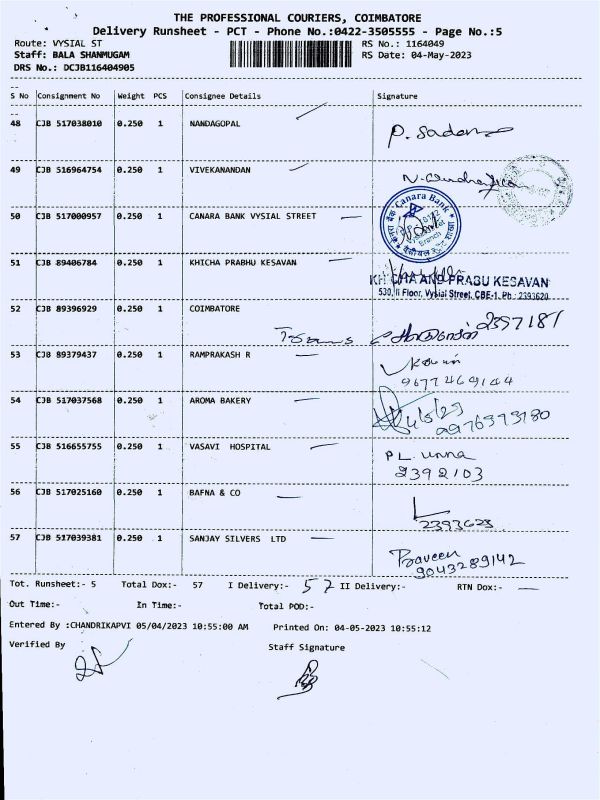 THE PROFESSIONAL COURIERS, COIMBATORE
Delivery Runsheet - PCT - Phone No.:0422-3505555 - Page No.:5
Route: VYSIAL ST
RS No.: 1164049
Staff: BALA SHANMUGAM
RS Date: 04-May-2023
DRS No.: DCJB116404905
S No Consignment No Weight PCS Consignee Details Signature
48 CJB 517038010 0.250 1 NANDAGOPAL
49 CJB 516964754 0.250 1 VIVEKANANDAN
50 CJB 517000957 0.250 1 CANARA BANK VYSIAL STREET
Canara Bank
51 CJB 89406784 0.250 1 KHICHA PRABHU KESAVAN
KHICHA AND PRABU KESAVAN
530, II Floor, Vysial Street, CBE-1. Ph : 2393620
52 CJB 89396929 0.250 1 COIMBATORE
2397181
53 CJB 89379437 0.250 1 RAMPRAKASH R
9677469144
54 CJB 517037568 0.250 1 AROMA BAKERY
4/5/23
55 CJB 516655755 0.250 1 VASAVI HOSPITAL
2392103
56 CJB 517025160 0.250 1 BAFNA & CO
2393623
57 CJB 517039381 0.250 1 SANJAY SILVERS LTD
Praveen
9043289142
Tot. Runsheet:- 5 Total Dox:- 57 I Delivery:- 57 II Delivery:- RTN Dox:-
Out Time:- In Time:- Total POD:-
Entered By :CHANDRIKAPVI 05/04/2023 10:55:00 AM Printed On: 04-05-2023 10:55:12
Verified By Staff Signature